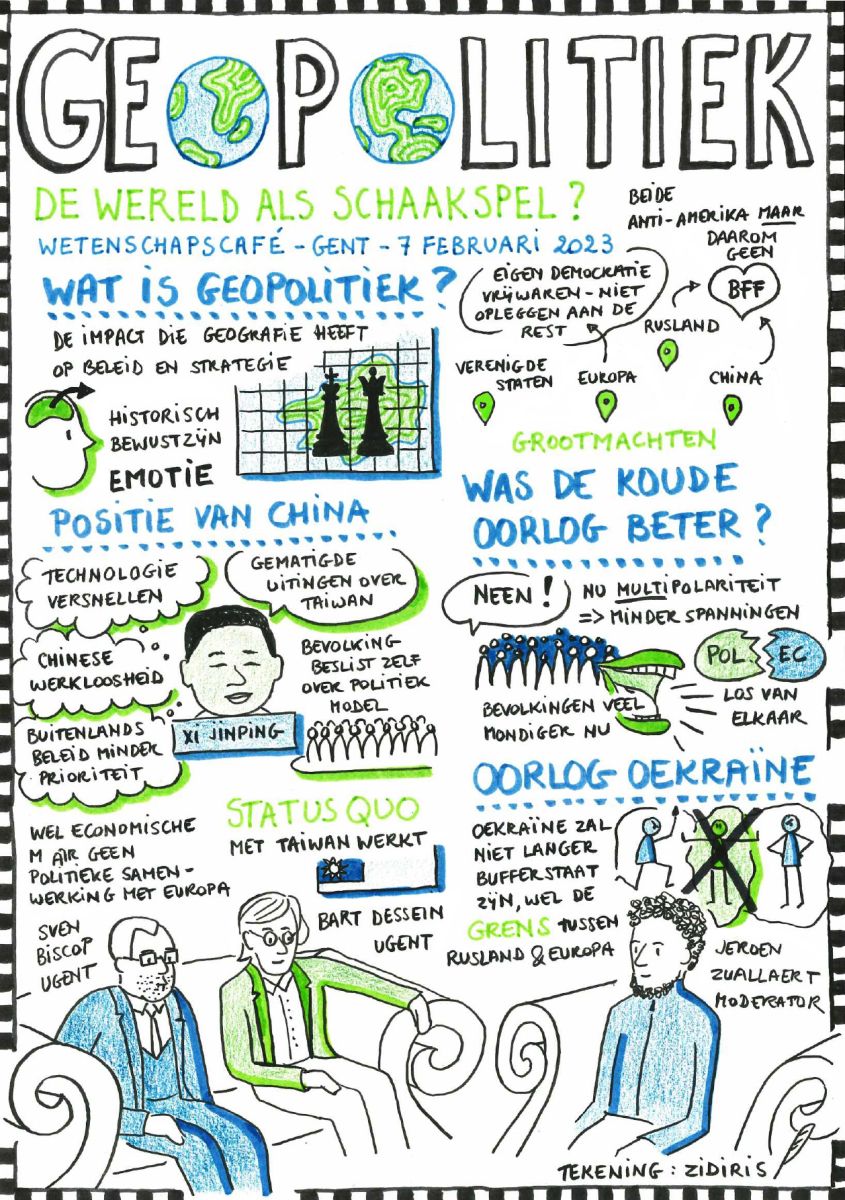 GEOPOLITIEK
DE WERELD ALS SCHAAKSPEL?
WETENSCHAPSCAFÉ - GENT - 7 FEBRUARI 2023
WAT IS GEOPOLITIEK?
DE IMPACT DIE GEOGRAFIE HEEFT
OP BELEID EN STRATEGIE
HISTORISCH
BEWUSTZIJN
EMOTIE
BEIDE
ANTI-AMERIKA MAAR
DAAROM
GEEN
BFF
EIGEN DEMOCRATIE
VRIJWAREN - NIET
OPLEGGEN AAN DE
REST
RUSLAND
VERENIGDE
STATEN
EUROPA
CHINA
GROOTMACHTEN
POSITIE VAN CHINA
TECHNOLOGIE
VERSNELLEN
GEMATIGDE
UITINGEN OVER
TAIWAN
CHINESE
WERKLOOSHEID
BUITENLANDS
BELEID MINDER
PRIORITEIT
XI JINPING
BEVOLKING
BESLIST ZELF
OVER POLITIEK
MODEL
WAS DE KOUDE
OORLOG BETER?
NEEN!
NU MULTIPOLARITEIT
=> MINDER SPANNINGEN
POL.
EC
LOS VAN
ELKAAR
BEVOLKINGEN VEEL
MONDIGER NU
WEL ECONOMISCHE
MAAR GEEN
POLITIEKE SAMEN-
WERKING MET EUROPA
STATUS QUO
MET TAIWAN WERKT
OORLOG OEKRAÏNE
OEKRAÏNE ZAL
NIET LANGER
BUFFERSTAAT
ZIJN, WEL DE
GRENS TUSSEN
RUSLAND & EUROPA
SVEN
BISCOP
UGENT
BART DESSEIN
UGENT
JEROEN
ZUALLAERT
MODERATOR
TEKENING: ZIDIRIS